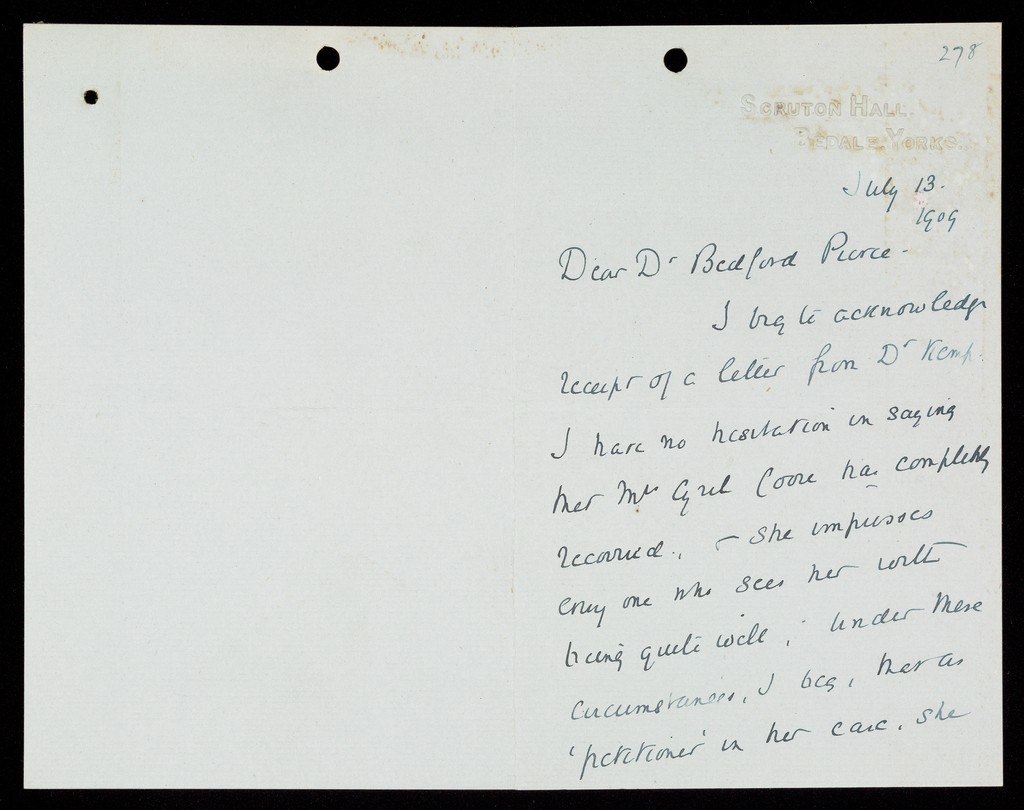 278
SCRUTON HALL,
BEDALE, YORKS.
July 13.
1909
Dear Dr Bedford Pierce -
I beg to acknowledge
receipt of a letter from Dr Kemp.
I have no hesitation in saying
that Mrs Cyril Coore has completely
recovered., & she impresses
every one who sees her with
being quite well; under these
circumstances, I beg, that as
'petitioner' in her case, she